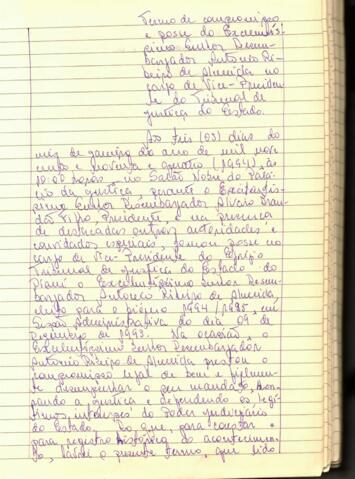 Termo de compromisso
e posse do Excelentís-
simo Senhor Desem-
bargador Antonio Ri-
beiro de Almeida no
cargo de Vice-Presiden-
te do Tribunal de
Justiça do Estado.
Aos três (03) dias do
mês de janeiro do ano de mil nove-
centos e noventa e quatro (1994), às
10:00 horas, no Salão Nobre do Palá-
cio da Justiça, perante o Excelentís-
simo Senhor Desembargador Álvaro Bran-
dão Filho, Presidente, e na presença
de destacadas outras autoridades e
convidados especiais, tomou posse no
cargo de Vice-Presidente do Egrégio
Tribunal de Justiça do Estado do
Piauí o Excelentíssimo Senhor Desem-
bargador Antonio Ribeiro de Almeida,
eleito para o biênio 1994/1995, em
Sessão Administrativa do dia 09 de
dezembro de 1993. Na ocasião, o
Excelentíssimo Senhor Desembargador
Antonio Ribeiro de Almeida prestou o
compromisso legal de bem e fielmen-
te desempenhar o seu mandato, hon-
rando a justiça e defendendo os legí-
timos interesses do Poder Judiciário
do Estado. Do que, para constar e
para registro histórico do acontecimen-
to, lavrei o presente termo, que lido